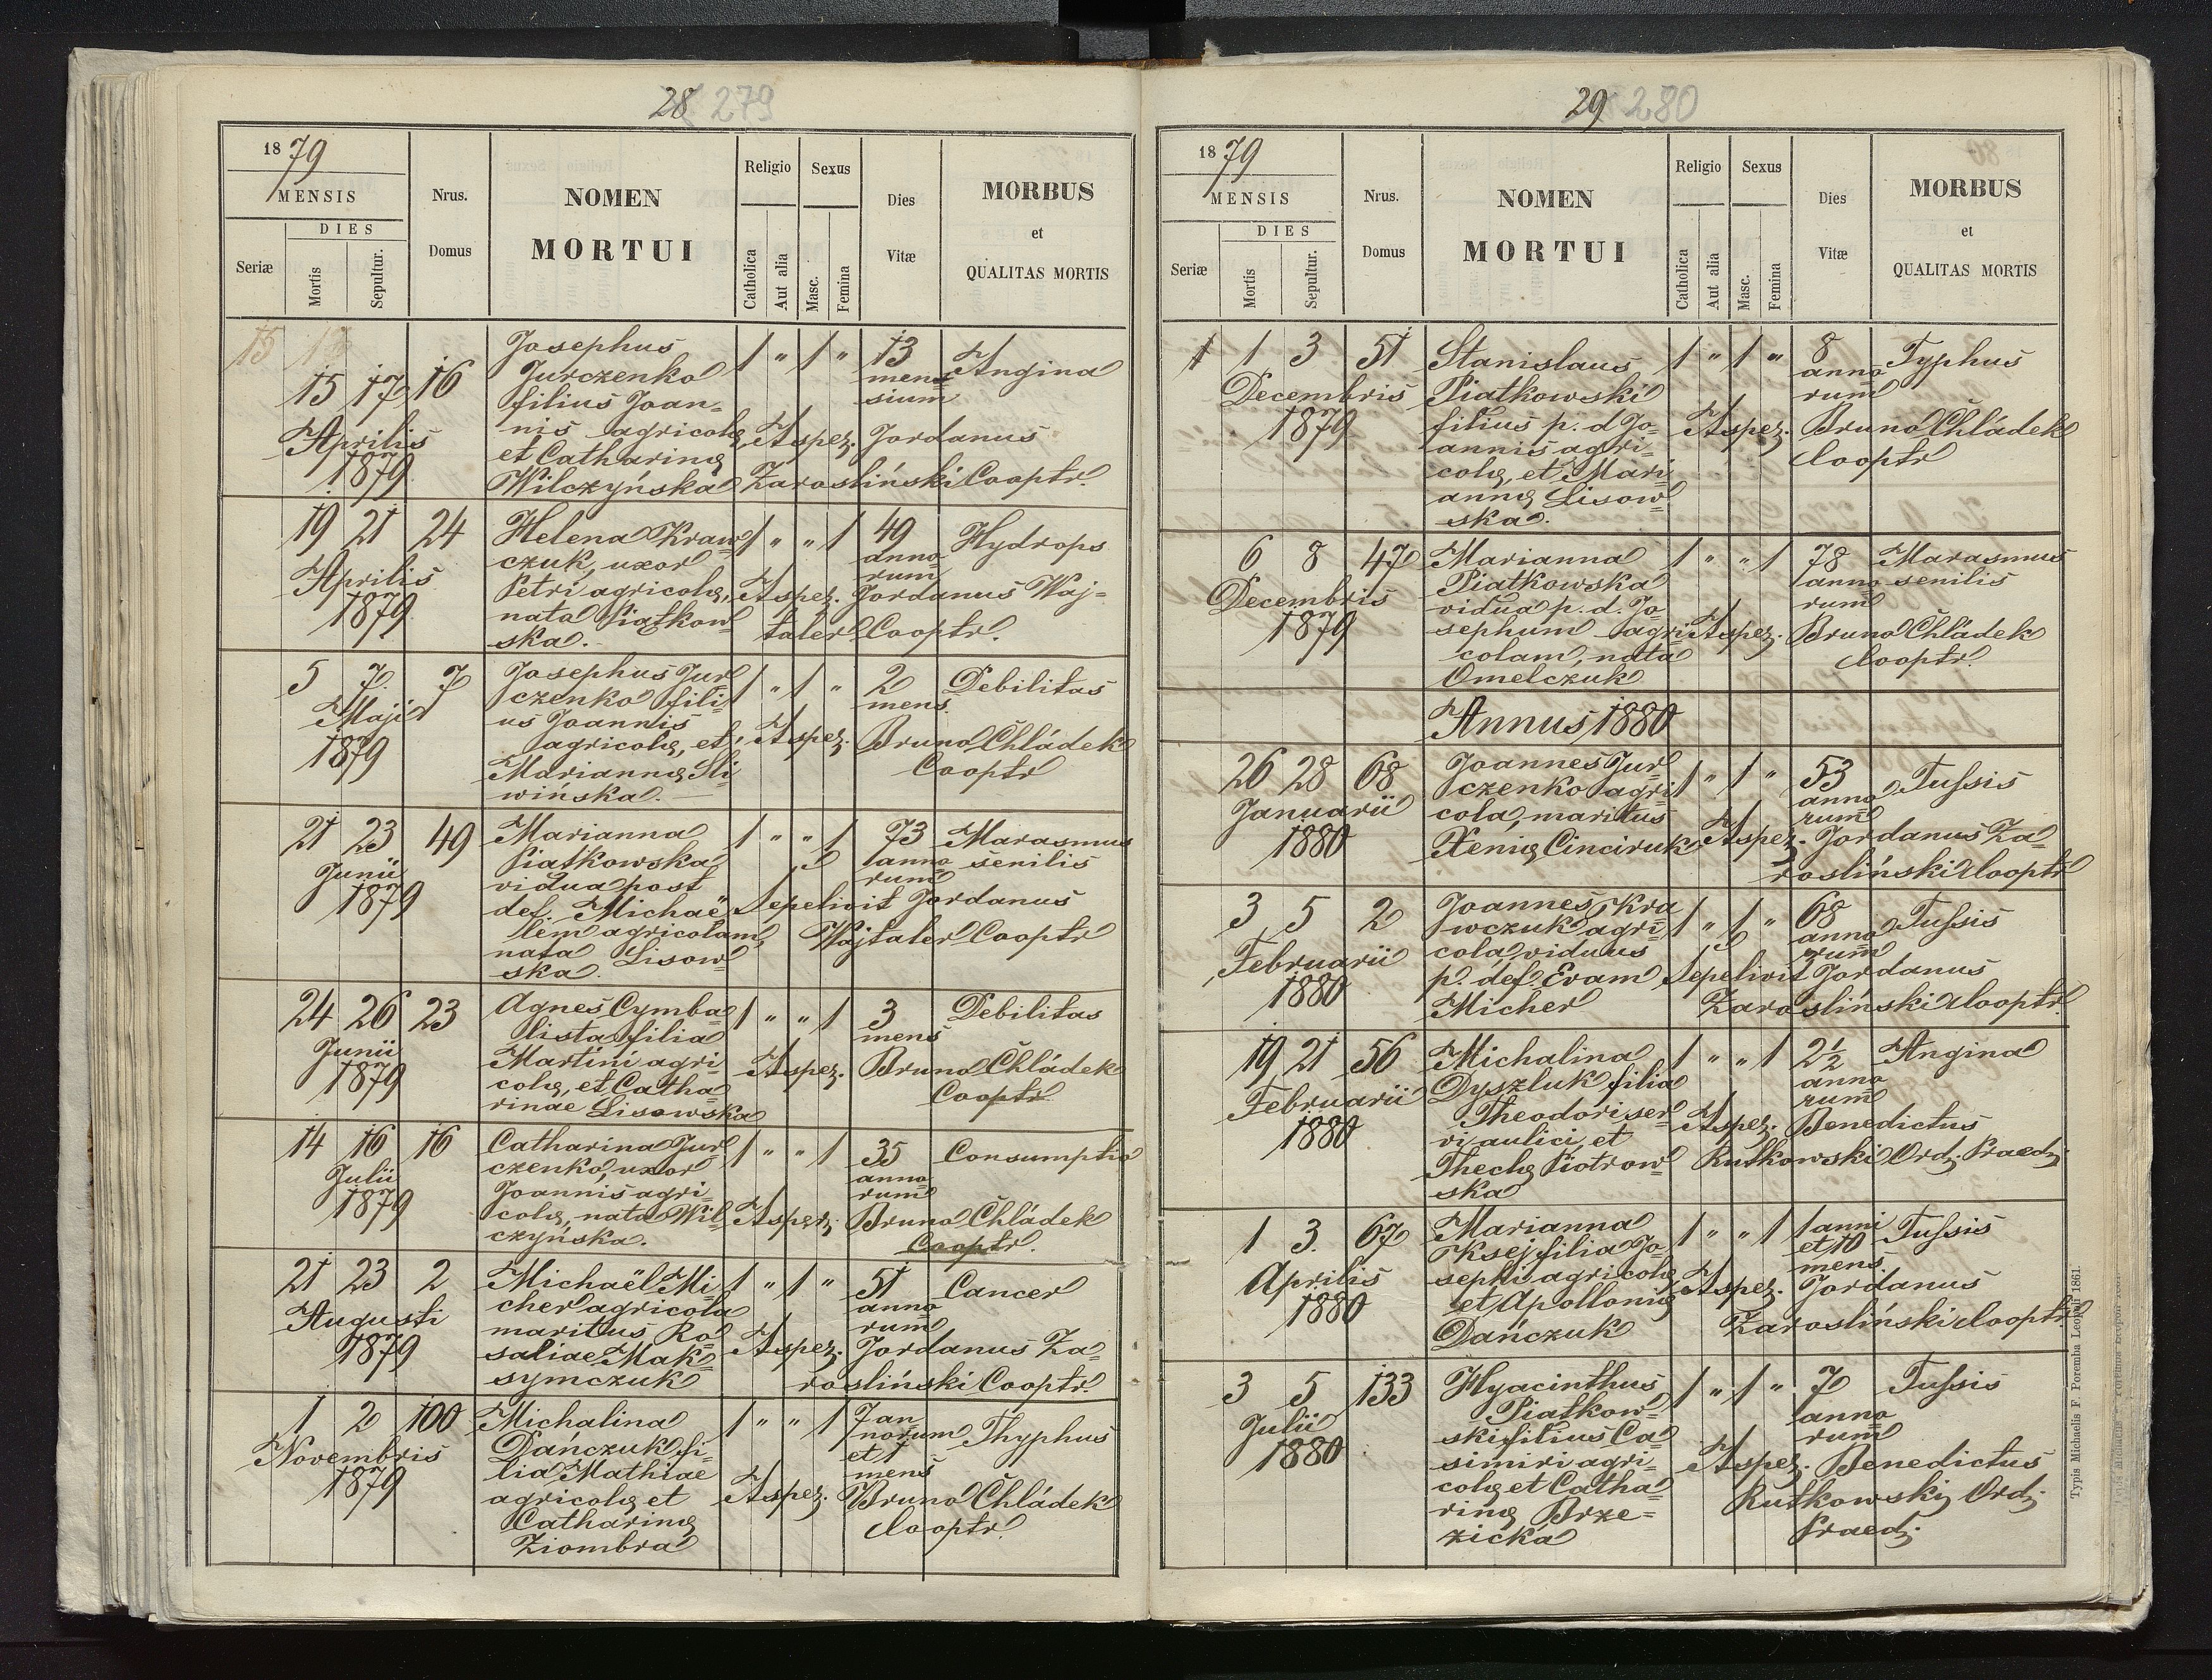 28 279
1879
MENSIS
DIES
Seriæ
Mortis
Sepultur.
Nrus.
Domus
NOMEN
MORTUI
Religio
Catholica
Aut alia
Sexus
Masc.
Femina
Dies
Vitæ
MORBUS
et
QUALITAS MORTIS
15 17 16
Aprilis
1879
Josephus
Jurczenko
filius Joan-
nis agricolę
et Catharinę
Wilczyńska
1 " 1 "
13
men=
sium
Angina
Aspez. Jordanus
Zarosliński Cooptr.
19 21 24
Aprilis
1879
Helena Kraw=
czuk, uxor
Petri agricolę,
nata Piątkow=
ska.
1 " " 1
49
anno
rum
Hydrops
Aspez. Jordanus Waj-
taler Cooptr.
5 7. 7
Maji
1879
Josephus Jur=
czenko fili=
us Joannis
agricolę, et
Mariannę Sli
wińska.
1 " 1 "
2
mens.
Debilitas
Aspez. Bruno Chládek
Cooptr
21 23 49
Junii
1879
Marianna
Piatkowska
vidua post
def. Michaë
lem agricolam,
nata Lisow=
ska.
1 " " 1
73
anno
rum
Marasmus
senilis
Sepelivit Jordanus
Wajtaler Cooptr
24 26 23
Junii
1879
Agnes Cymba=
lista filia
Martini agri=
colę, et Catha=
rinae Lisowska
1 " " 1
3
mens
Debilitas
Aspez. Bruno Chládek
Cooptr
14 16 16
Julii
1879
Catharina Jur=
czenko, uxor
Joannis agri=
colę, nata Wil=
czyńska.
1 " " 1
35
anno
rum
Consumptio
Aspez. Bruno Chládek
Cooptr.
21 23 2
Augusti
1879
Michaël Mi=
cher agricola
maritus Ro=
saliae Mak=
symczuk
1 " 1 "
51
anno
rum
Cancer
Aspez. Jordanus Za=
rosliński Cooptr.
1 2 100
Novembris
1879
Michalina
Dańczuk fi=
lia Mathiae
agricolę et
Catharinę
Ziombra
1 " " 1
7 an
norum
et 1
mens
Thyphus
Aspez. Bruno Chládek
Cooptr.
29 280
1879
MENSIS
DIES
Seriæ
Mortis
Sepultur.
Nrus.
Domus
NOMEN
MORTUI
Religio
Catholica
Aut alia
Sexus
Masc.
Femina
Dies
Vitæ
MORBUS
et
QUALITAS MORTIS
1 1 3 51
Decembris
1879
Stanislaus
Piatkowski
filius p. d Jo=
annis agri=
colę, et Mari
annę Lisow=
ska.
1 " 1 "
8
anno
rum
Typhus
Aspez. Bruno Chládek
Cooptr
6 8 47
Decembris
1879
Marianna
Piatkowska
vidua p. d. Jo
sephum agri
colam, nata
Omelczuk
1 " " 1
78
anno
rum
Marasmus
senilis
Aspez. Bruno Chládek
Cooptr.
Annus 1880
26 28 68
Januarii
1880
Joannes Jur=
czenko agri
cola, maritus
Xenię Cinciruk
1 " 1 "
53
anno
rum
Tussis
Aspez. Jordanus Za=
rosliński Cooptr
3 5 2
Februarii
1880
Joannes Kra
wczuk agri=
cola viduus
p. def. Evam
Micher
1 " 1 "
68
anno
rum
Tussis
Sepelivit Jordanus
Zarosliński Cooptr.
19 21 56
Februarii
1880
Michalina
Dyszluk filia
Theodori ser=
vi aulici, et
Theclę Piotrow=
ska
1 " " 1
2½
anno
rum
Angina
Aspez. Benedictus
Rutkowski Ord. Praed.
1 3. 67
Aprilis
1880
Marianna
Ksej filia Jo=
sephi agricolę
et Apollonię
Dańczuk
1 " " 1
1 anni
et 10
mens.
Tussis
Aspez. Jordanus
Zarosliński Cooptr
3 5 133
Julii
1880
Hyacinthus
Piatkow=
ski filius Ca=
simiri agri=
colę et Catha=
rinę Brze=
zicka
1 " 1 "
7
anno
rum
Tussis
Aspez. Benedictus
Rutkowski Ord.
Praed.
Typis Michaelis F. Poremba Leopoli 1861.